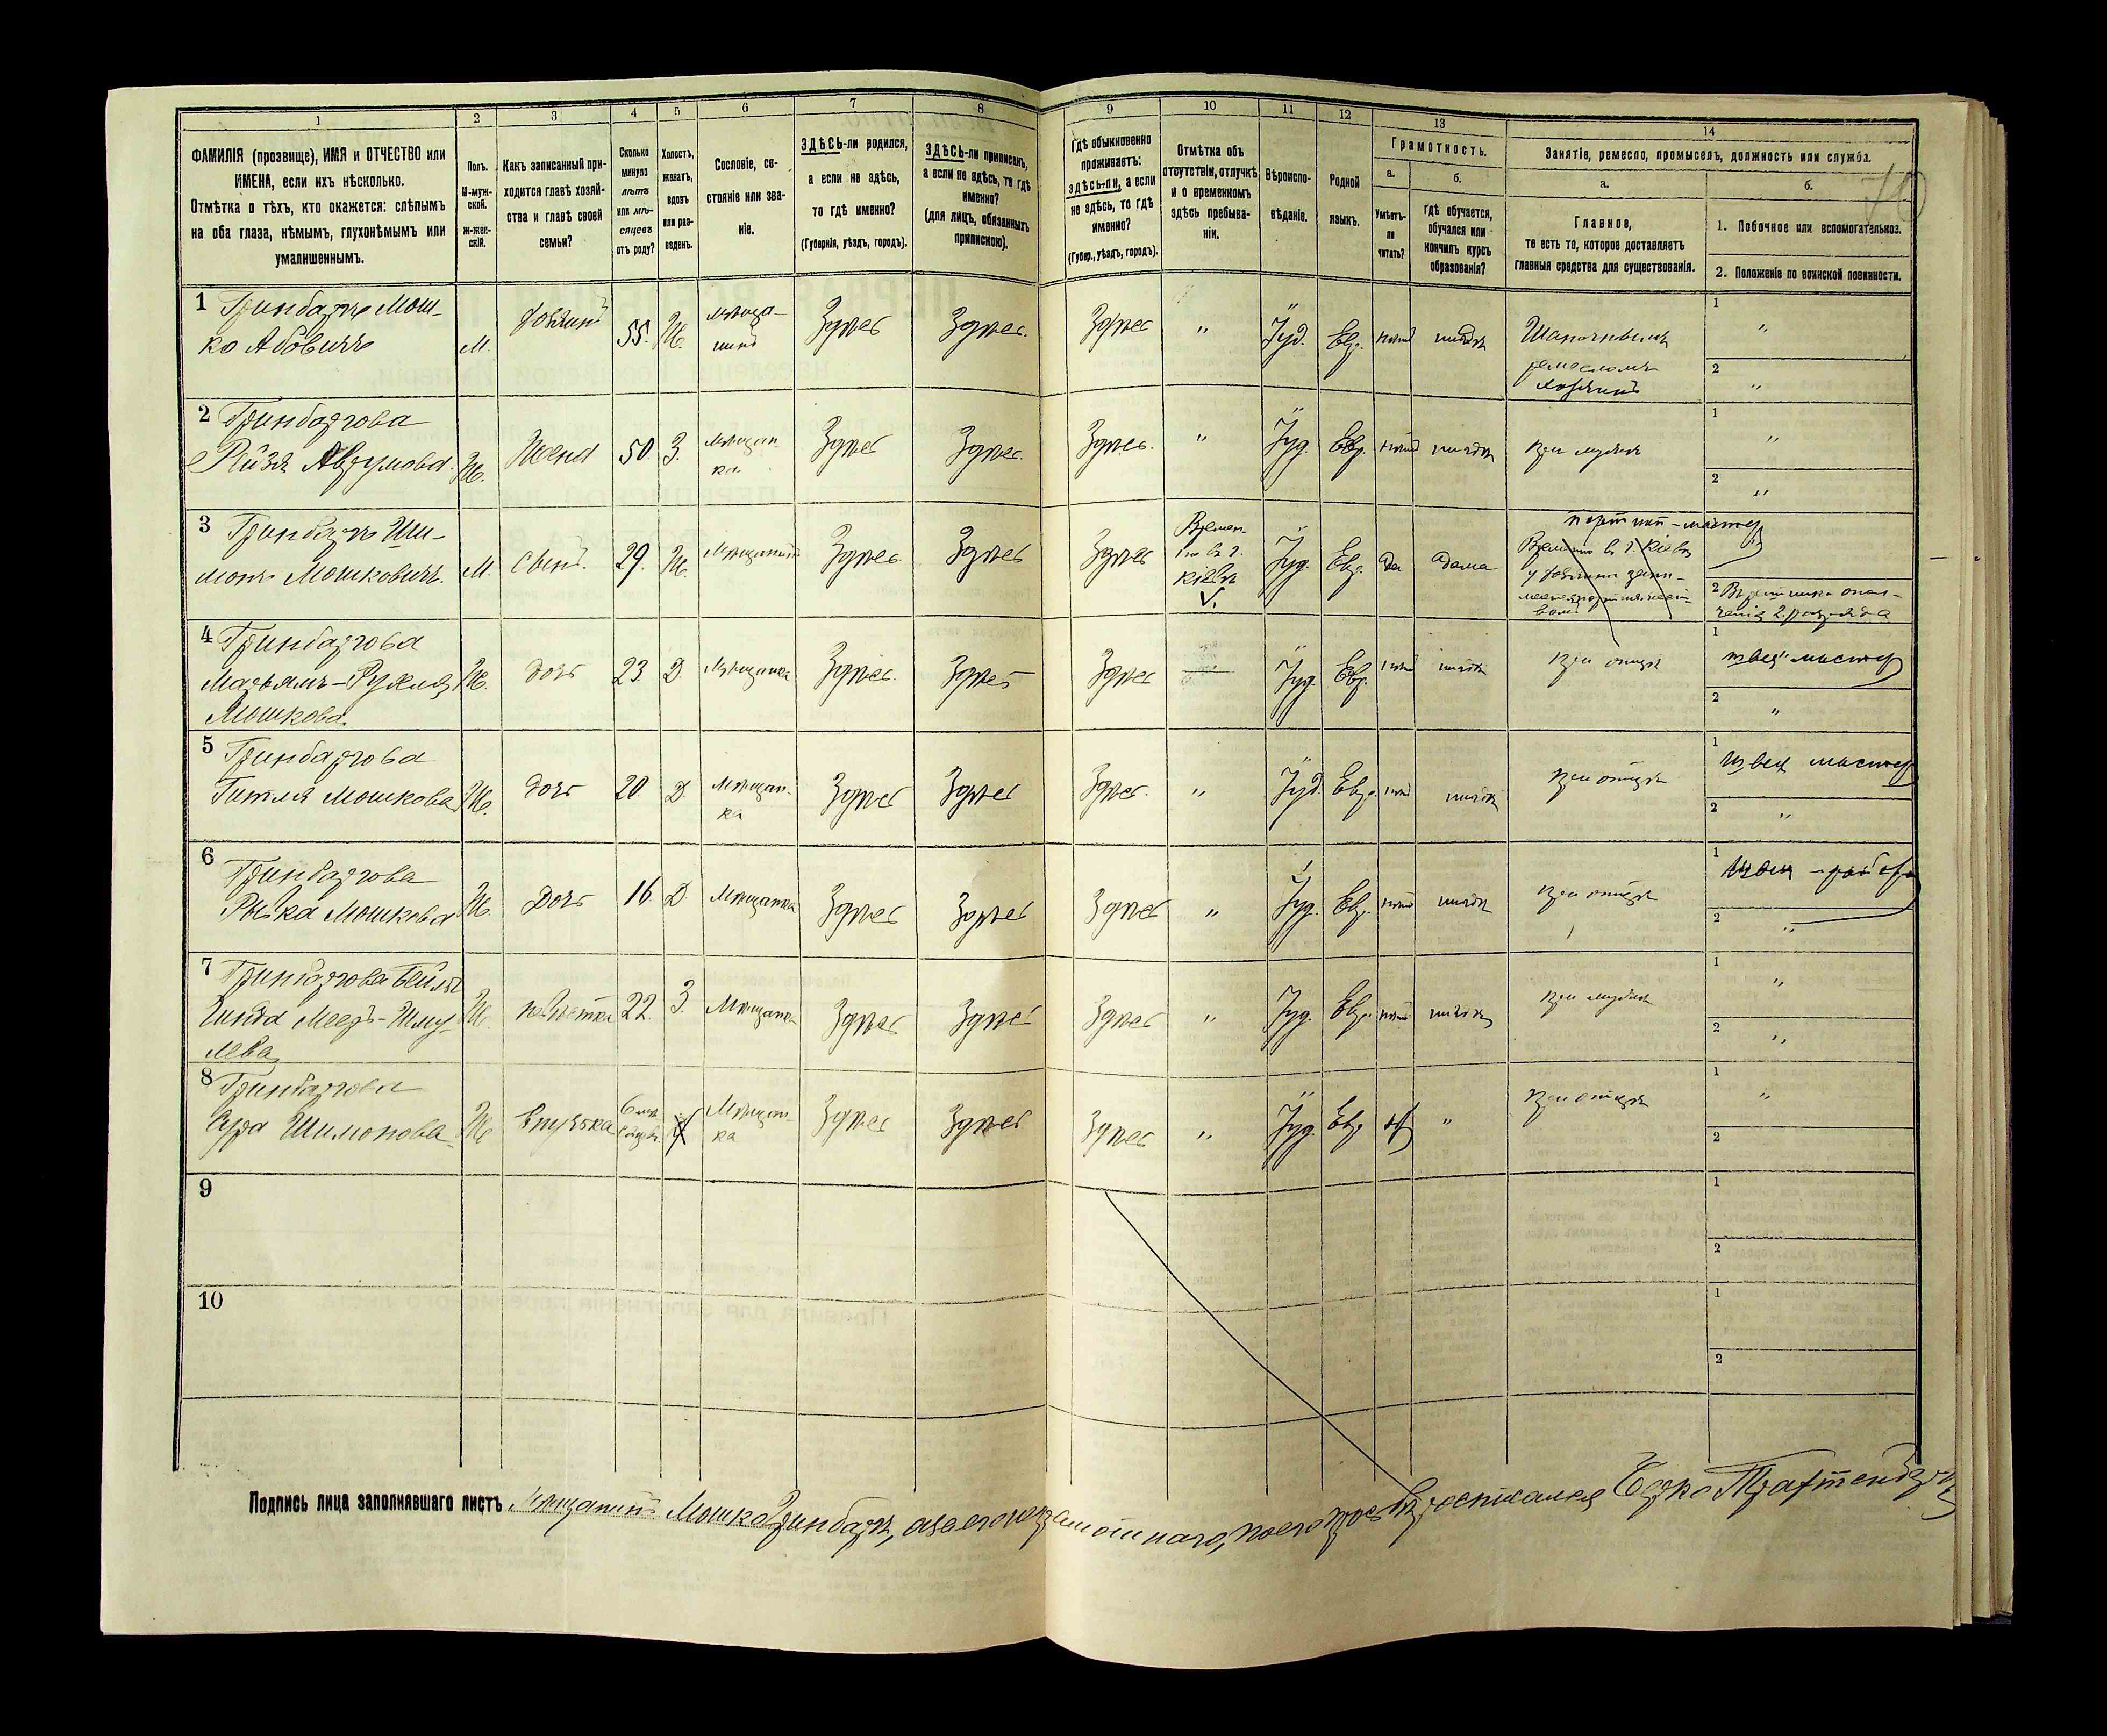 1
2
3
4
5
6
7
8
9
10
11
12
13
14
ФАМИЛІЯ (прозвище), ИМЯ и ОТЧЕСТВО или
ИМЕНА, если ихъ нѣсколько.
Отмѣтка о тѣхъ, кто окажется: слѣпымъ
на оба глаза, нѣмымъ, глухонѣмымъ или
умалишеннымъ.
Полъ.
М-муж-
ской.
Ж-жен-
скій.
Какъ записанный при-
ходится главѣ хозяй-
ства и главѣ своей
семьи?
Сколько
минуло
лѣтъ
или мѣ-
сяцевъ
отъ роду?
Холостъ,
женатъ,
вдовъ
или раз-
веденъ.
Сословіе, со-
стояніе или зва-
ніе.
ЗДѢСЬ-ли родился,
а если не здѣсь,
то гдѣ именно?
(Губернія, уѣздъ, городъ).
ЗДѢСЬ-ли приписанъ,
а если не здѣсь, то гдѣ
именно?
(для лицъ, обязанныхъ
припискою).
Гдѣ обыкновенно
проживаетъ:
здѣсь-ли, а если
не здѣсь, то гдѣ
именно?
(Губер., уѣздъ, городъ).
Отмѣтка объ
отсутствіи, отлучкѣ
и о временномъ
здѣсь пребыва-
ніи.
Вѣроиспо-
вѣданіе.
Родной
языкъ.
Грамотность.
а.
Умѣетъ-
ли
читать?
б.
Гдѣ обучается,
обучался или
кончилъ курсъ
образованія?
Занятіе, ремесло, промыселъ, должность или служба.
а.
Главное,
то есть то, которое доставляетъ
главныя средства для существованія.
б.
1. Побочное или вспомогательное.
2. Положеніе по воинской повинности.
1 Гринбаргъ Мош-
ко Абовичъ
М. хозяинъ 55. Ж. мѣща-
нинъ
Здѣсь Здѣсь. Здѣсь " Іуд. Евр. нѣтъ нигдѣ
ремесломъ
хозяинъ
1 "
2 "
2 Гринбаргова
Рейзя Аврумова.
Ж. Жена 50. З. Мѣщан-
ка
Здѣсь Здѣсь. Здѣсь. " Іуд. Евр. нѣтъ нигдѣ при мужѣ
1 "
2 "
3 Гринбаргъ Ши-
монъ Мошковичъ.
М. Сынъ. 29. Ж. Мѣщанинъ Здѣсь. Здѣсь Здѣсь
Времен
но въ г.
Кіевѣ
V.
Іуд. Евр. да дома
портной - мастер
Временно въ г. Кіевѣ
2 Ратника опол-
ченія 2 разряда
4 Гринбаргова
Марьямъ-Рухля
Мошкова.
Ж. дочь 23. Д. Мѣщанка Здѣсь. Здѣсь Здѣсь Іуд. Евр. нѣтъ нигдѣ при отцѣ
1 швея мастер
2 "
5 Гринбаргова
Гитля Мошкова
Ж. дочь 20. Д. Мѣщан-
ка
Здѣсь Здѣсь Здѣсь. " Іуд. Евр. нѣтъ нигдѣ при отцѣ
1 швея мастер
2 "
6 Гринбаргова
Ривка Мошкова
Ж. Дочь 16. Д. Мѣщанка Здѣсь Здѣсь Здѣсь " Іуд. Евр. нѣтъ нигдѣ при отцѣ
1 швея
2 "
7 Гринбаргова Бейля
Гинда Мееръ-Шму-
лева
Ж. невѣстка 22. З. Мѣщанка Здѣсь Здѣсь Здѣсь " Іуд. Евр. нѣтъ нигдѣ при мужѣ
1 "
2 "
8 Гринбаргова
Сура Шимонова
Ж. внучька 6 Мѣщан-
ка
Здѣсь Здѣсь Здѣсь " Іуд. Евр. " при отцѣ
1 "
2
9
1
2
10
1
2
Подпись лица заполнявшаго листъ Мѣщанинъ Мошко Гринбаргъ, а за его неграмотнаго, по его прозьбѣ росписался